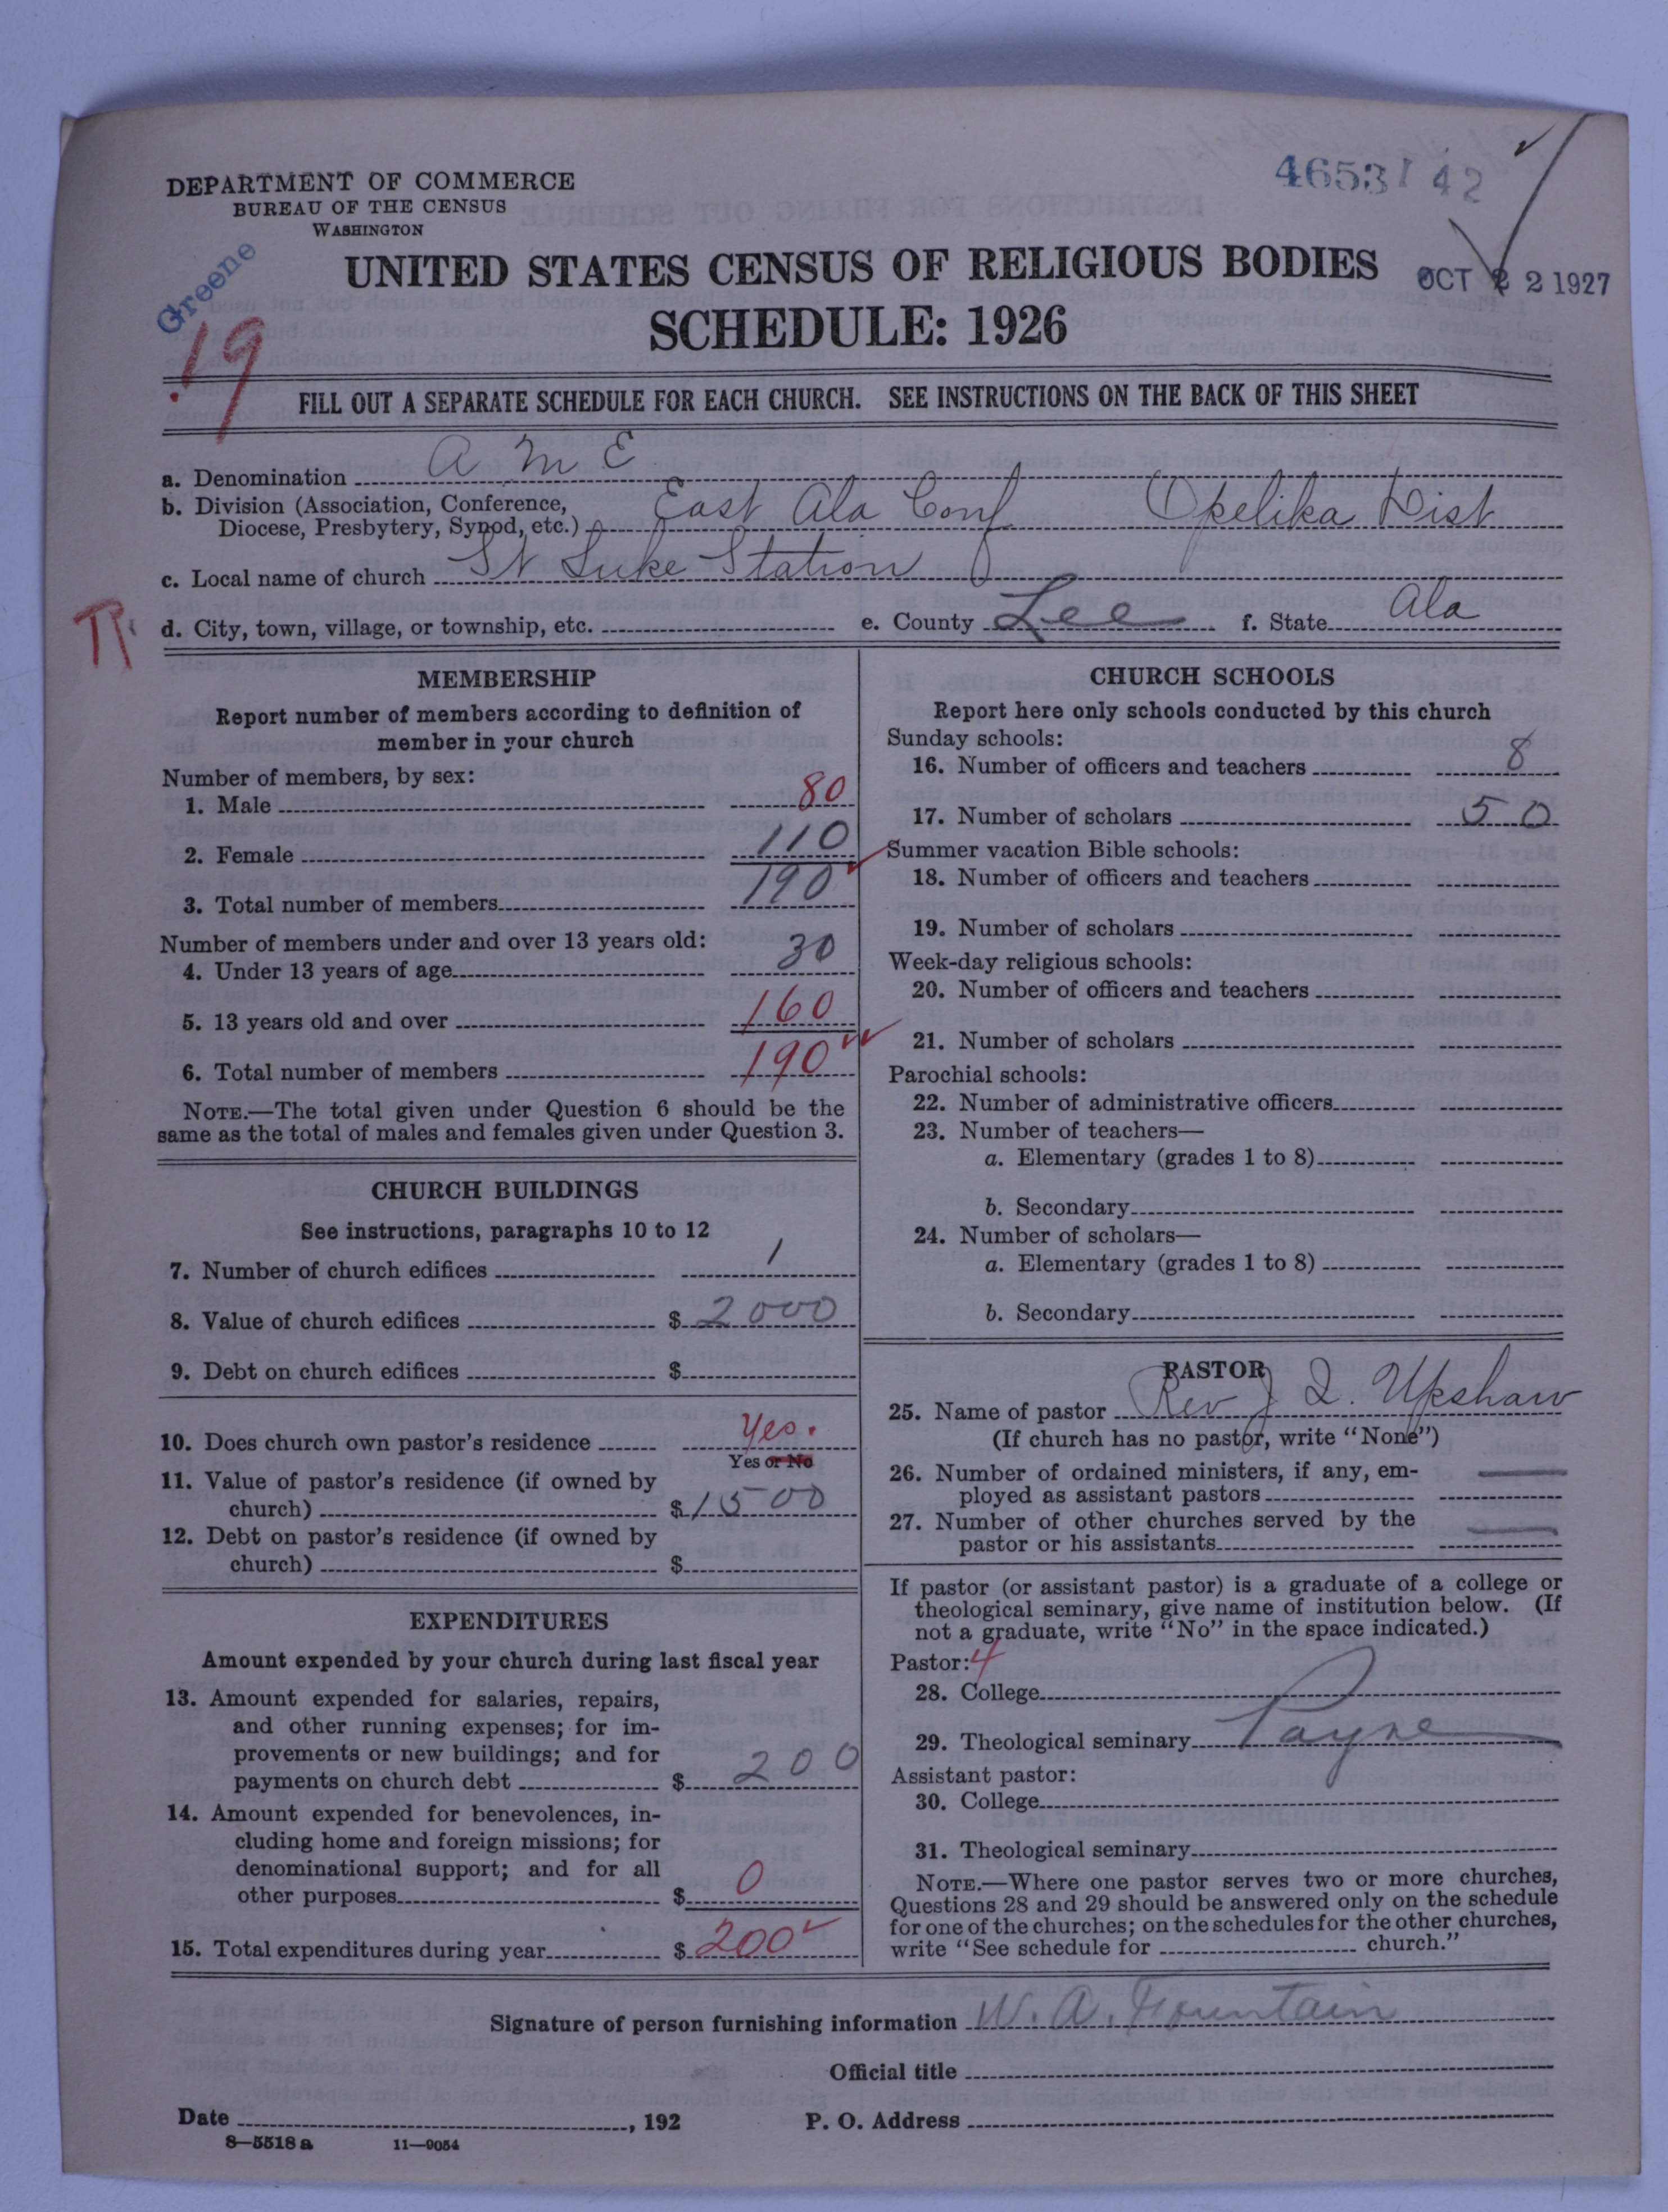 46531 42
DEPARTMENT OF COMMERCE
BUREAU OF THE CENSUS
WASHINGTON
Greene
19
UNITED STATES CENSUS OF RELIGIOUS BODIES
OCT 22 1927
SCHEDULE: 1926
FILL OUT A SEPARATE SCHEDULE FOR EACH CHURCH. SEE INSTRUCTIONS ON THE BACK OF THIS SHEET
a. Denomination A M E
b. Division (Association, Conference,
Diocese, Presbytery, Synod, etc.) East Ala Conf Opelika Dist
c. Local name of church St Luke Station
R
d. City, town, village, or township, etc. e. County Lee f. State Ala
MEMBERSHIP
Report number of members according to definition of
member in your church
Number of members, by sex:
1. Male 80
2. Female 110
3. Total number of members 190
Number of members under and over 13 years old:
4. Under 13 years of age 30
5. 13 years old and over 160
6. Total number of members 190
NOTE.—The total given under Question 6 should be the
same as the total of males and females given under Question 3.
CHURCH BUILDINGS
See instructions, paragraphs 10 to 12
7. Number of church edifices 1
8. Value of church edifices $ 2000
9. Debt on church edifices $
10. Does church own pastor's residence Yes.
Yes or No
11. Value of pastor's residence (if owned by
church) $ 1500
12. Debt on pastor's residence (if owned by
church) $
EXPENDITURES
Amount expended by your church during last fiscal year
13. Amount expended for salaries, repairs,
and other running expenses; for im-
provements or new buildings; and for
payments on church debt $ 200
14. Amount expended for benevolences, in-
cluding home and foreign missions; for
denominational support; and for all
other purposes $ 0
15. Total expenditures during year $ 200
CHURCH SCHOOLS
Report here only schools conducted by this church
Sunday schools:
16. Number of officers and teachers 8
17. Number of scholars 50
Summer vacation Bible schools:
18. Number of officers and teachers
19. Number of scholars
Week-day religious schools:
20. Number of officers and teachers
21. Number of scholars
Parochial schools:
22. Number of administrative officers
23. Number of teachers—
a. Elementary (grades 1 to 8)
b. Secondary
24. Number of scholars—
a. Elementary (grades 1 to 8)
b. Secondary
PASTOR
25. Name of pastor Rev J Q. Upshaw
(If church has no pastor, write "None")
26. Number of ordained ministers, if any, em-
ployed as assistant pastors —
27. Number of other churches served by the
pastor or his assistants —
If pastor (or assistant pastor) is a graduate of a college or
theological seminary, give name of institution below. (If
not a graduate, write "No" in the space indicated.)
Pastor: 4
28. College
29. Theological seminary Payne
Assistant pastor:
30. College
31. Theological seminary
NOTE.—Where one pastor serves two or more churches,
Questions 28 and 29 should be answered only on the schedule
for one of the churches; on the schedules for the other churches,
write "See schedule for church."
Signature of person furnishing information W. A. Fountain
Official title
Date , 192 P. O. Address
8—5518 a 11—9054